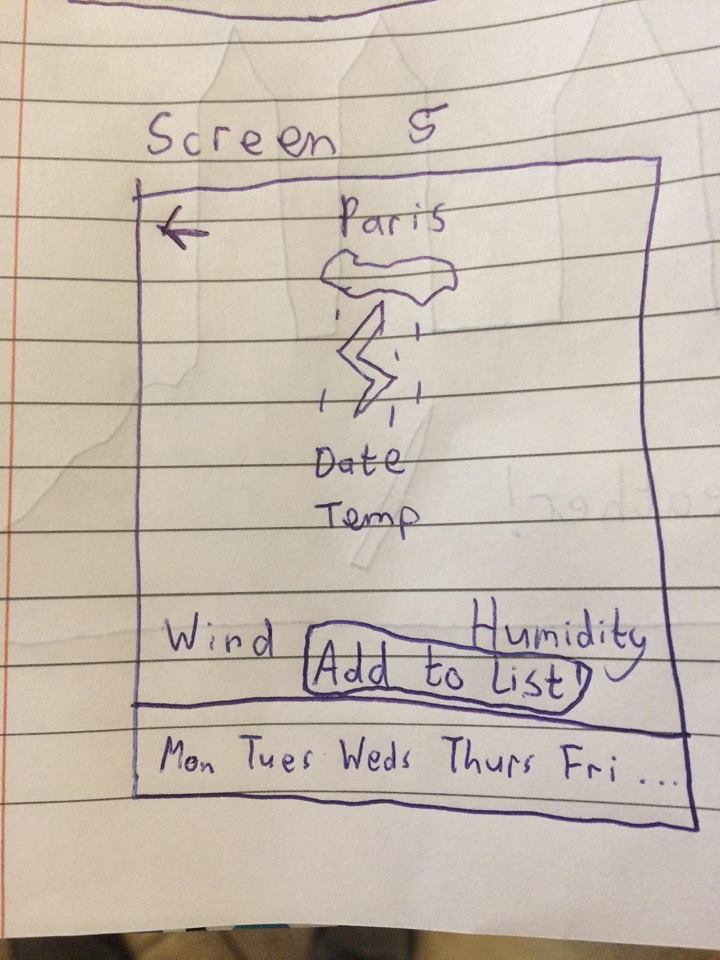 Screen 5
Paris
Date
Temp
Wind Humidity
Add to List
Mon Tues Weds Thurs Fri ...